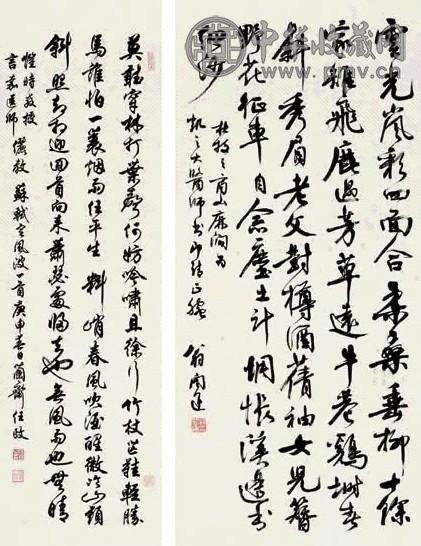 雲光嵐彩四面合柔桑垂柳十餘
家雉飛鹿過芳草遠牛巷鷄塒春日
斜秀眉老父對樽酒蒨袖女兒簪
野花征車自念塵土計惆悵溪邊書
細沙
杜牧之商山麻澗為
凱之大醫師書即請正腕
翁闓運
莫聽穿林打葉聲何妨吟嘯且徐行竹杖芒鞋輕勝
馬誰怕一蓑烟雨任平生料峭春風吹酒醒微冷山頭
斜照却相迎回首向來蕭瑟處歸去也無風雨也無晴
惺時教授
醫師儷教蘇軾定風波一首庚申春日蘭齋任政
中华收藏网